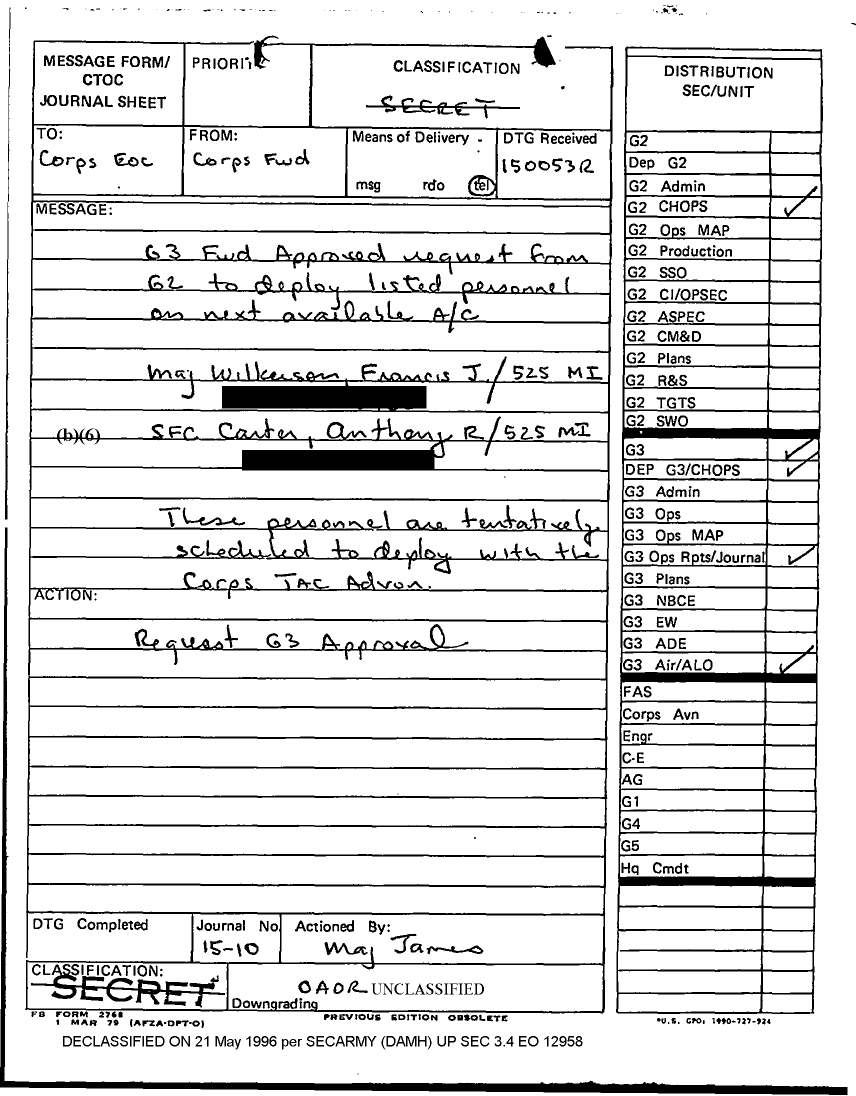 MESSAGE FORM/
CTOC
JOURNAL SHEET
PRIORIT
CLASSIFICATION
SECRET
TO:
Corps EOC
FROM:
Corps Fwd
Means of Delivery
msg rdo tel
DTG Received
150053R
MESSAGE:
G3 Fwd Approved request from
G2 to deploy listed personnel
on next available A/C
Maj Wilkerson, Francis J./525 MI
(b)(6) SFC Carter, Anthony R/525 MI
These personnel are tentatively
scheduled to deploy with the
Corps TAC Advon.
ACTION:
Request G3 Approval
DTG Completed
Journal No.
15-10
Actioned By:
Maj James
CLASSIFICATION:
SECRET
OADR UNCLASSIFIED
Downgrading
FB FORM 2768
1 MAR 79 (AFZA-DPT-O)
PREVIOUS EDITION OBSOLETE
DISTRIBUTION
SEC/UNIT
G2
Dep G2
G2 Admin
G2 CHOPS
G2 Ops MAP
G2 Production
G2 SSO
G2 CI/OPSEC
G2 ASPEC
G2 CM&D
G2 Plans
G2 R&S
G2 TGTS
G2 SWO
G3
DEP G3/CHOPS
G3 Admin
G3 Ops
G3 Ops MAP
G3 Ops Rpts/Journal
G3 Plans
G3 NBCE
G3 EW
G3 ADE
G3 Air/ALO
FAS
Corps Avn
Engr
C-E
AG
G1
G4
G5
Hq Cmdt
*U.S. GPO: 1990-727-924
DECLASSIFIED ON 21 May 1996 per SECARMY (DAMH) UP SEC 3.4 EO 12958